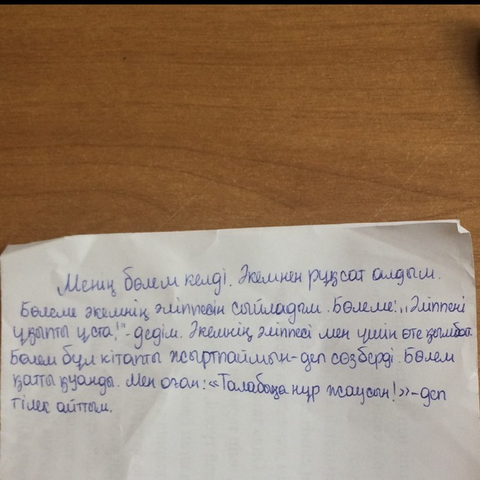 Менің бөлем келді. Әкемнен рұқсат алдым.
Бөлеме әкемнің әліппесін сыйладым. Бөлеме: „Әліппені
ұқыпты ұста!"-дедім. Әкемнің әліппесі мен үшін өте қымбат.
Бөлем бұл кітапты жыртпаймын-деп сөз берді. Бөлем
қатты қуанды. Мен оған: «Талабыңа нұр жаусын!»-деп
тілек айттым.